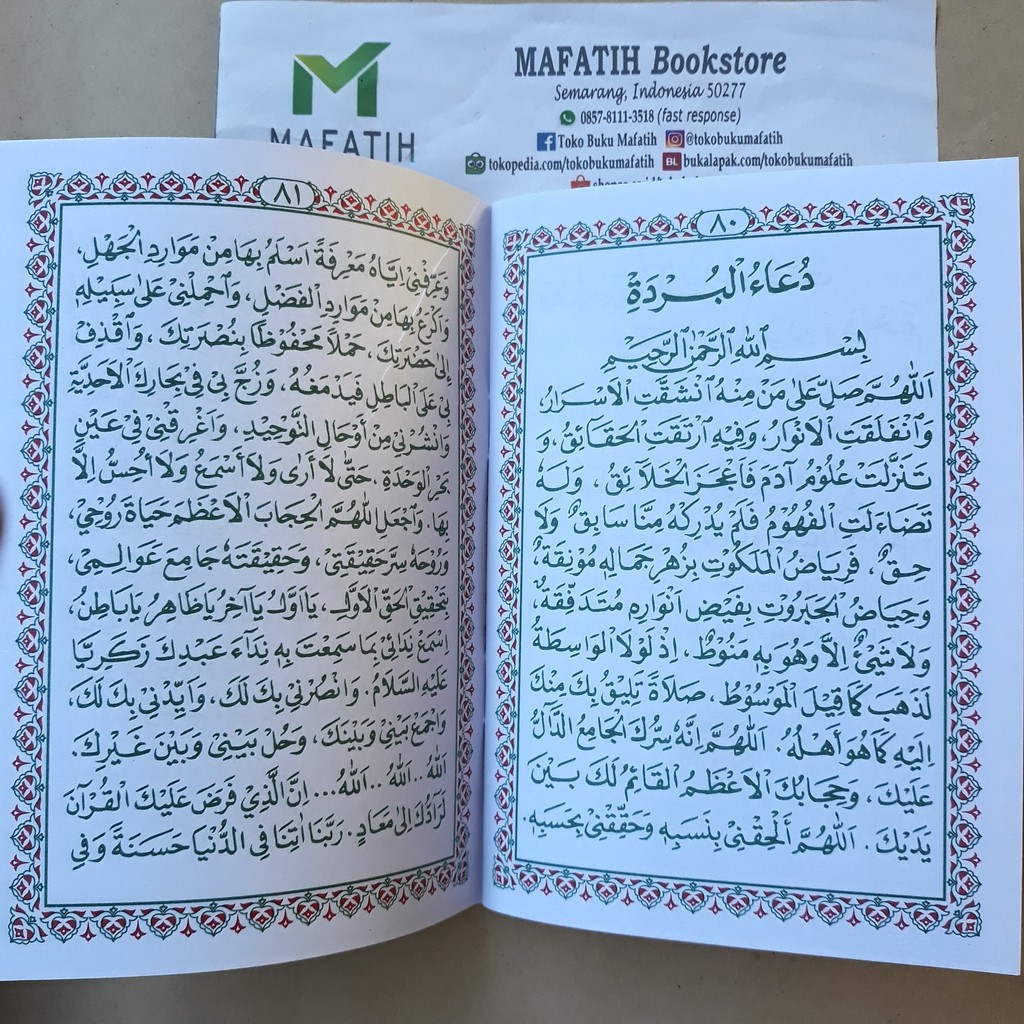 MAFATIH
MAFATIH Bookstore
Semarang, Indonesia 50277
0857-8111-3518 (fast response)
Toko Buku Mafatih @tokobukumafatih
tokopedia.com/tokobukumafatih BL bukalapak.com/tokobukumafatih
٨٠
دُعَاءُ الْبُرْدَةِ
بِسْمِ اللهِ الرَّحْمٰنِ الرَّحِيْمِ
اَللّٰهُمَّ صَلِّ عَلٰى مَنْ مِنْهُ انْشَقَّتِ الْاَسْرَارُ،
وَانْفَلَقَتِ الْاَنْوَارُ، وَفِيْهِ ارْتَقَتِ الْحَقَائِقُ، وَ
تَنَزَّلَتْ عُلُوْمُ آدَمَ فَاَعْجَزَ الْخَلَائِقَ، وَلَهُ
تَضَاءَلَتِ الْفُهُوْمُ فَلَمْ يُدْرِكْهُ مِنَّا سَابِقٌ وَلَا
حِقٌ، فَرِيَاضُ الْمَلَكُوْتِ بِزَهْرِ جَمَالِهِ مُوْنِقَةٌ،
وَحِيَاضُ الْجَبَرُوْتِ بِفَيْضِ اَنْوَارِهِ مُتَدَفِّقَةٌ،
وَلَا شَيْءٌ اِلَّا وَهُوَ بِهِ مَنُوْطٌ، اِذْ لَوْلَا الْوَاسِطَةُ
لَذَهَبَ كَمَا قِيْلَ الْمَوْسُوْطُ، صَلَاةً تَلِيْقُ بِكَ مِنْكَ
اِلَيْهِ كَمَا هُوَ اَهْلُهُ. اَللّٰهُمَّ اِنَّهُ سِرُّكَ الْجَامِعُ الدَّالُّ
عَلَيْكَ، وَحِجَابُكَ الْاَعْظَمُ الْقَائِمُ لَكَ بَيْنَ
يَدَيْكَ. اَللّٰهُمَّ اَلْحِقْنِيْ بِنَسَبِهِ وَحَقِّقْنِيْ بِحَسَبِهِ.
٨١
وَعَرِّفْنِيْ اِيَّاهُ مَعْرِفَةً اَسْلَمُ بِهَا مِنْ مَوَارِدِ الْجَهْلِ،
وَاَكْرَعُ بِهَا مِنْ مَوَارِدِ الْفَضْلِ، وَاحْمِلْنِيْ عَلٰى سَبِيْلِهِ
اِلٰى حَضْرَتِكَ، حَمْلًا مَحْفُوْظًا بِنُصْرَتِكَ، وَاقْذِفْ
بِيْ عَلَى الْبَاطِلِ فَيَدْمَغُهُ، وَزُجَّ بِيْ فِيْ بِحَارِكَ الْاَحَدِيَّةِ
وَانْشُرْنِيْ مِنْ اَوْحَالِ التَّوْحِيْدِ، وَاَغْرِقْنِيْ فِيْ عَيْنِ
بَحْرِ الْوَحْدَةِ. حَتّٰى لَا اَرٰى وَلَا اَسْمَعُ وَلَا اُحِسُّ اِلَّا
بِهَا. وَاجْعَلِ اللّٰهُمَّ الْحِجَابَ الْاَعْظَمَ حَيَاةَ رُوْحِيْ،
وَرُوْحَهُ سِرَّ حَقِيْقَتِيْ، وَحَقِيْقَتَهُ جَامِعَ عَوَالِمِيْ،
بِتَحْقِيْقِ الْحَقِّ الْاَوَّلِ، يَا اَوَّلُ يَا آخِرُ يَا ظَاهِرُ يَا بَاطِنُ،
اِسْمَعْ نِدَائِيْ بِمَا سَمِعْتَ بِهِ نِدَاءَ عَبْدِكَ زَكَرِيَّا
عَلَيْهِ السَّلَامُ. وَانْصُرْنِيْ بِكَ لَكَ، وَاَيِّدْنِيْ بِكَ لَكَ،
وَاجْمَعْ بَيْنِيْ وَبَيْنَكَ، وَحُلْ بَيْنِيْ وَبَيْنَ غَيْرِكَ.
اَللهُ .. اَللهُ .. اَللهُ... اِنَّ الَّذِيْ فَرَضَ عَلَيْكَ الْقُرْآنَ
لَرَادُّكَ اِلٰى مَعَادٍ. رَبَّنَا اٰتِنَا فِي الدُّنْيَا حَسَنَةً وَفِي